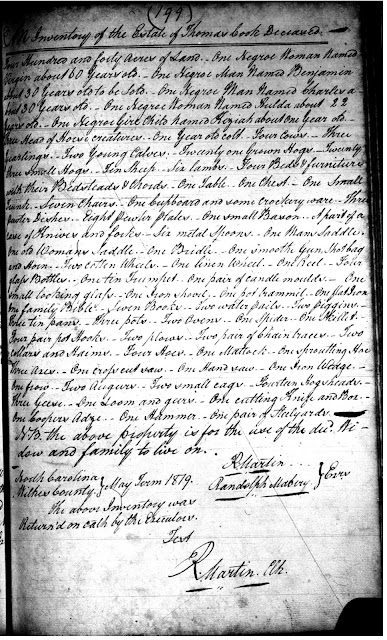 (199)
An Inventory of the Estate of Thomas Cook Deceased. —
Four Hundred and forty Acres of Land — One Negroe Woman Named
about 60 years old — One Negroe Man Named Benjamin
about 30 years old to be Sold — One Negroe Man Named Charles a
bout 30 years old — One Negroe Woman Named Hulda about 22
years old — One Negroe Girl Child named Keziah about One year old —
Head of Horse creatures — One year old colt — Four cows — Three
yearlings — Two Young Calves — Twenty one Grown Hogs — Twenty
three Small Hogs — Ten Sheep — Six lambs — Four Beds & furniture
with their Bedsteads & Chords — One Table — One Chest — One Small
Trunk — Seven Chairs — One Cupboard and some crockery ware — Three
pewter Dishes — Eight Pewter Plates — One small Bason — A part of a
case of Knives and forks — Six metal Spoons — One Mans Saddle —
One old Womans Saddle — One Bridle — One Smooth Gun, Shot bag
and Horn — Two cotton Wheels — One linen Wheel — One Reel — Four
glass Bottles — One tin Trumpet — One pair of candle moulds — One
small looking glass — One Iron Shovel — One pot hammil — One flat Iron
One family Bible — Seven Books — Two water pails — Two Piggins
three tin pans — three pots — Two Ovens — One Spider — One Skillet —
Four pair pot Hooks — Two plows — Two pair of Chain traces — Two
collars and Haims — Four Hoes — One Mattock — One Sprouting Hoe
Three Axes — One cross cut saw — One Hand saw — One Iron Wedge —
One frow — Two Augers — Two small cags — Fourteen Hogsheads —
Three Geese — One Loom and geers — One cutting Knife and Box —
One Coopers Adze — One Hammer — One pair of Steelyards —
N.B. the above property is for the use of the decd. Wi-
dow and family to live on. .
R Martin
Randolph Mabery } Exrs
North Carolina
Wilkes County } May Term 1819.
The above Inventory was
Return'd on oath by the Executors.
Test
R. Martin. Clk.